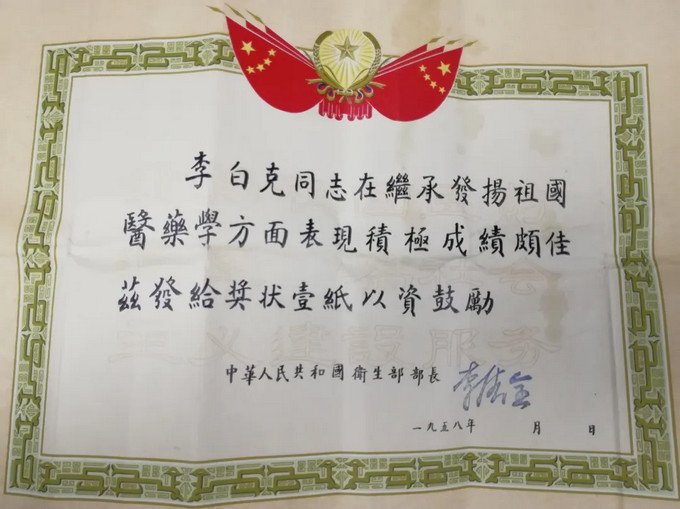 李白克同志在繼承發揚祖國
醫藥學方面表現積極成績頗佳
茲發給奖状壹紙以資鼓勵
中華人民共和國衛生部部長 李德全
一九五八年 月 日